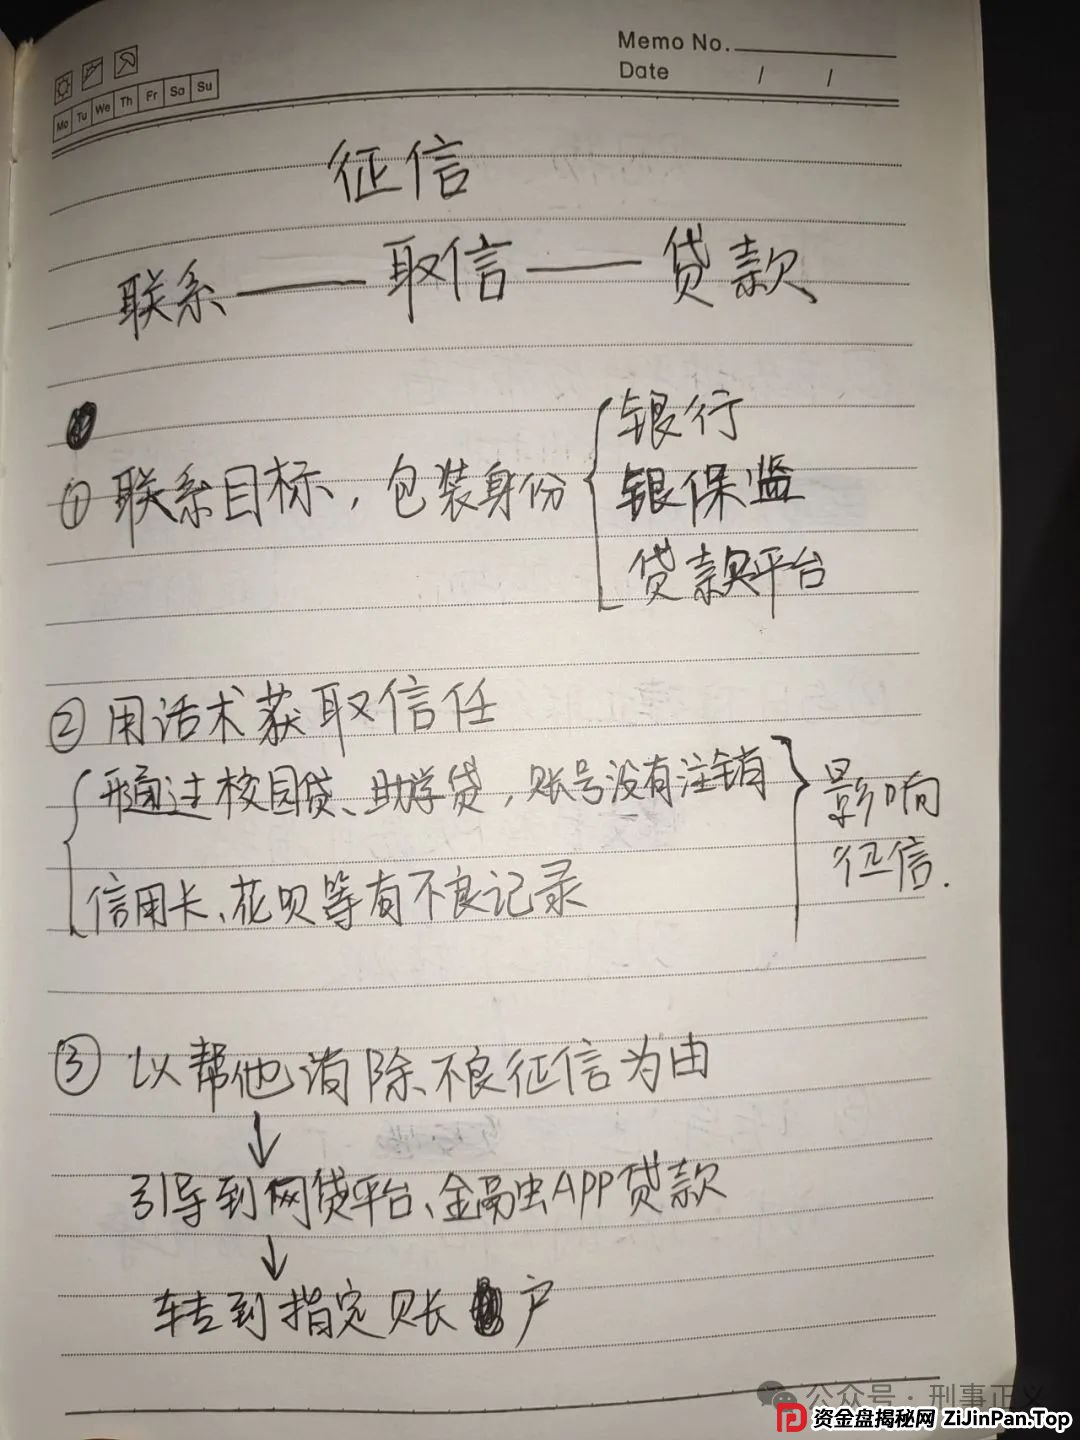 Memo No.
Date / /
Mo Tu We Th Fr Sa Su
征信
联系——取信——贷款
① 联系目标，包装身份
银行
银保监
贷款平台
② 用话术获取信任
通过校园贷、助学贷，账号没有注销
信用卡、花呗等有不良记录
影响
征信.
③ 以帮他消除不良征信为由
↓
引导到网贷平台、金融APP贷款
↓
转到指定账户
公众号·刑事正义
资金盘揭秘网 ZiJinPan.Top